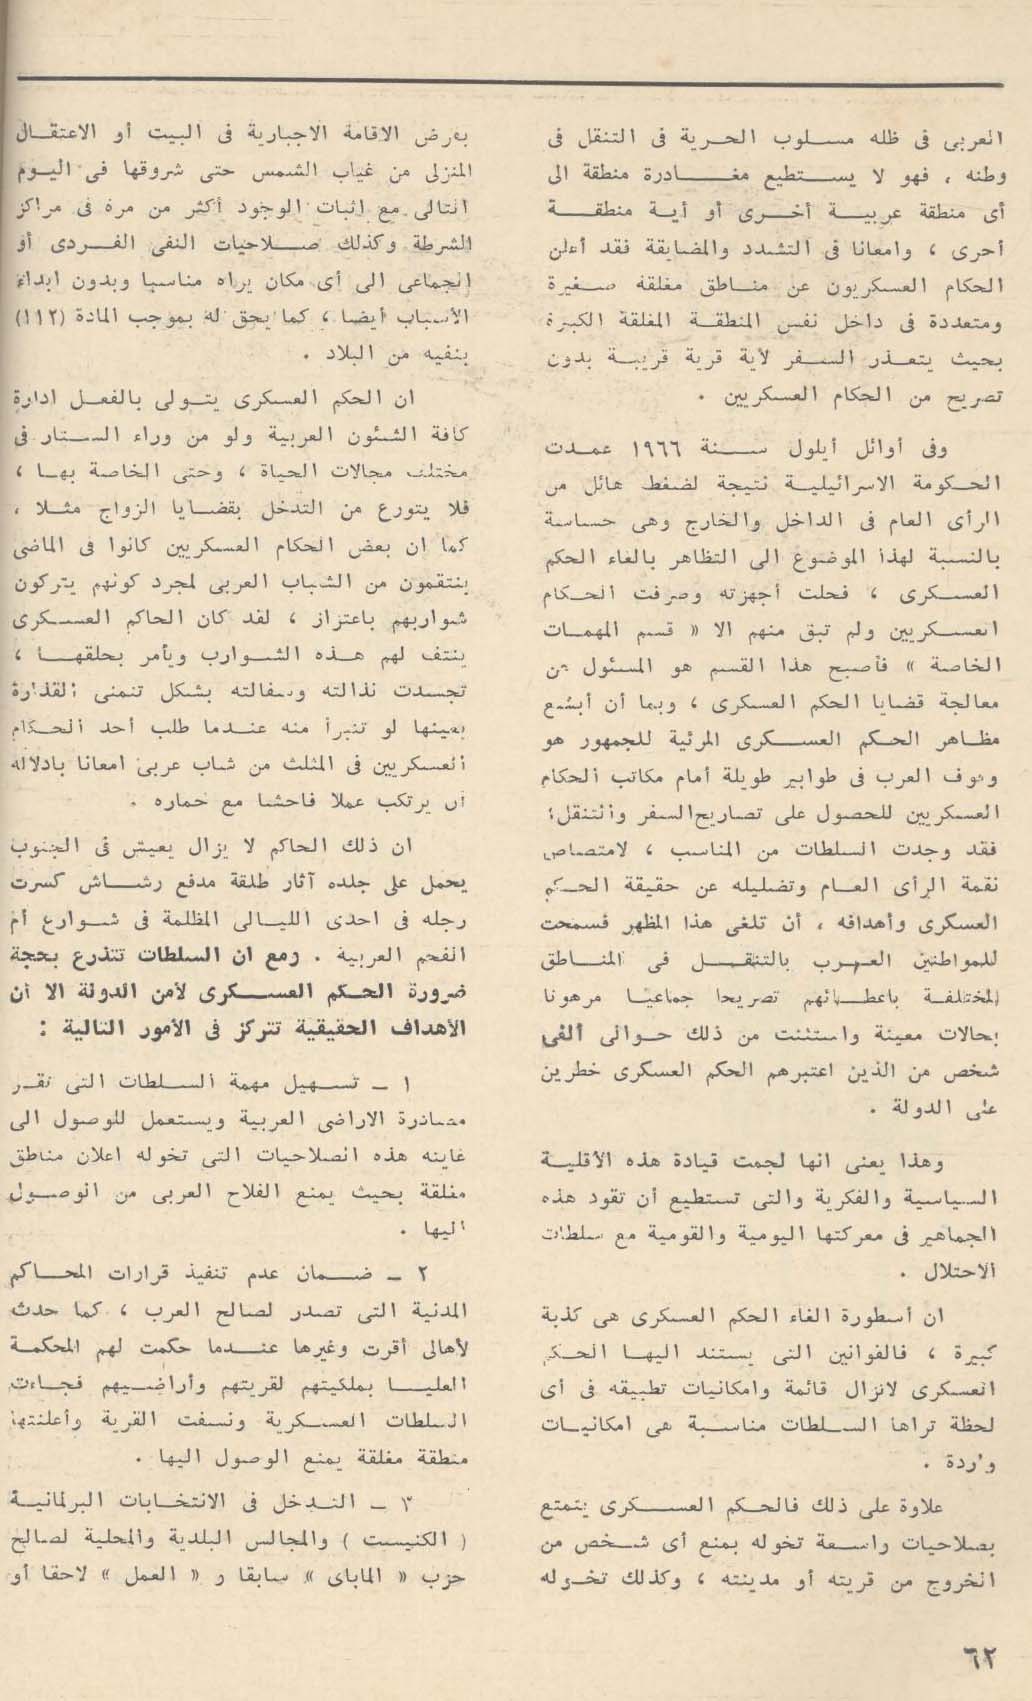 العربى فى ظله مسلوب الحرية فى التنقل فى
وطنه ، فهو لا يستطيع مغادرة منطقة الى
أى منطقة عربية أخرى أو أية منطقة
أخرى ، وامعانا فى التشدد والمضايقة فقد أعلن
الحكام العسكريون عن مناطق مغلقة صغيرة
ومتعددة فى داخل نفس المنطقة المغلقة الكبيرة
بحيث يتعذر السفر لأية قرية قريبة بدون
تصريح من الحكام العسكريين .
وفى أوائل أيلول سنة ١٩٦٦ عمدت
الحكومة الاسرائيلية نتيجة لضغط هائل من
الرأى العام فى الداخل والخارج وهى حساسة
بالنسبة لهذا الموضوع الى التظاهر بالغاء الحكم
العسكرى ، فحلت أجهزته وصرفت الحكام
العسكريين ولم تبق منهم الا « قسم المهمات
الخاصة » فأصبح هذا القسم هو المسئول عن
معالجة قضايا الحكم العسكرى ، وبما أن أبشع
مظاهر الحكم العسكرى المرئية للجمهور هو
وقوف العرب فى طوابير طويلة أمام مكاتب الحكام
العسكريين للحصول على تصاريح السفر والتنقل؛
فقد وجدت السلطات من المناسب ، لامتصاص
نقمة الرأى العام وتضليله عن حقيقة الحكم
العسكرى وأهدافه ، أن تلغى هذا المظهر فسمحت
للمواطنين العرب بالتنقل فى المناطق
المختلفة باعطائهم تصريحا جماعيا مرهونا
بحالات معينة واستثنت من ذلك حوالى ألفى
شخص من الذين اعتبرهم الحكم العسكرى خطرين
على الدولة .
وهذا يعنى انها لجمت قيادة هذه الأقلية
السياسية والفكرية والتى تستطيع أن تقود هذه
الجماهير فى معركتها اليومية والقومية مع سلطات
الاحتلال .
ان أسطورة الغاء الحكم العسكرى هى كذبة
كبيرة ، فالقوانين التى يستند اليها الحكم
العسكرى لانزال قائمة وامكانيات تطبيقه فى أى
لحظة تراها السلطات مناسبة هى امكانيات
واردة .
علاوة على ذلك فالحكم العسكرى يتمتع
بصلاحيات واسعة تخوله بمنع أى شخص من
الخروج من قريته أو مدينته ، وكذلك تخوله
بفرض الاقامة الاجبارية فى البيت أو الاعتقال
المنزلى من غياب الشمس حتى شروقها فى اليوم
التالى مع اثبات الوجود أكثر من مرة فى مراكز
الشرطة وكذلك صلاحيات النفى الفردى أو
الجماعى الى أى مكان يراه مناسبا وبدون ابداء
الأسباب أيضا ، كما يحق له بموجب المادة (١١٢)
بنفيه من البلاد .
ان الحكم العسكرى يتولى بالفعل ادارة
كافة الشئون العربية ولو من وراء الستار فى
مختلف مجالات الحياة ، وحتى الخاصة بها ،
فلا يتورع من التدخل بقضايا الزواج مثلا ،
كما ان بعض الحكام العسكريين كانوا فى الماضى
ينتقمون من الشباب العربى لمجرد كونهم يتركون
شواربهم باعتزاز ، لقد كان الحاكم العسكرى
ينتف لهم هذه الشوارب ويأمر بحلقها ،
تجسدت نذالته وسفالته بشكل تتمنى القذارة
بعينها لو تتبرأ منه عندما طلب أحد الحكام
العسكريين فى المثلث من شاب عربى امعانا باذلاله
أن يرتكب عملا فاحشا مع حماره .
ان ذلك الحاكم لا يزال يعيش فى الجنوب
يحمل على جلده آثار طلقة مدفع رشاش كسرت
رجله فى احدى الليالى المظلمة فى شوارع أم
الفحم العربية . ومع ان السلطات تتذرع بحجة
ضرورة الحكم العسكرى لأمن الدولة الا أن
الأهداف الحقيقية تتركز فى الأمور التالية :
١ ــ تسهيل مهمة السلطات التى تقرر
مصادرة الاراضى العربية ويستعمل للوصول الى
غايته هذه الصلاحيات التى تخوله اعلان مناطق
مغلقة بحيث يمنع الفلاح العربى من الوصول
اليها .
٢ ــ ضمان عدم تنفيذ قرارات المحاكم
المدنية التى تصدر لصالح العرب ، كما حدث
لأهالى أقرت وغيرها عندما حكمت لهم المحكمة
العليا بملكيتهم لقريتهم وأراضيهم فجاءت
السلطات العسكرية ونسفت القرية وأعلنتها
منطقة مغلقة يمنع الوصول اليها .
٣ ــ التدخل فى الانتخابات البرلمانية
( الكنيست ) والمجالس البلدية والمحلية لصالح
حزب « الماباى » سابقا و « العمل » لاحقا أو
٦٢